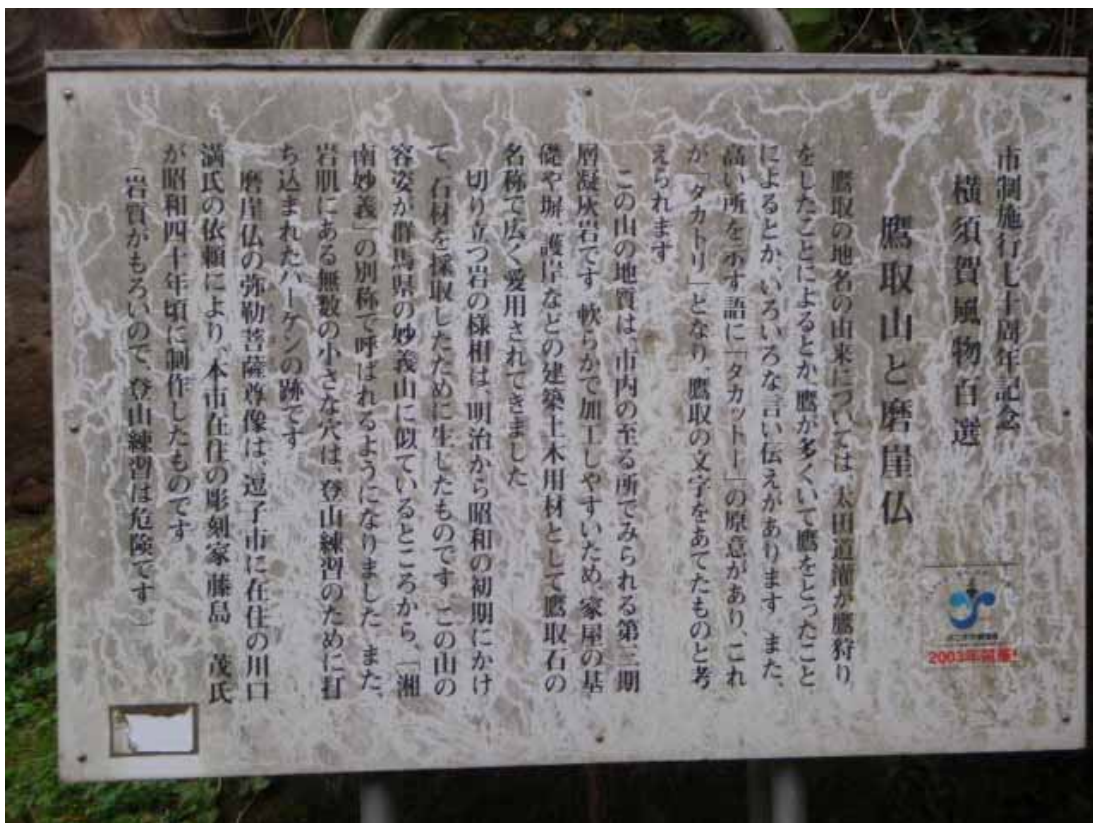 市制施行七十周年記念
横須賀風物百選
鷹取山と磨崖仏
鷹取の地名の由来については、太田道灌が鷹狩り
をしたことによるとか、鷹が多くいて鷹をとったこと
によるとか、いろいろな言い伝えがあります。また、
高い所を示す語に「タカットー」の原意があり、これ
が「タカトリ」となり、鷹取の文字をあてたものと考
えられます。
この山の地質は、市内の至る所でみられる第三期
層凝灰岩です。軟らかで加工しやすいため、家屋の基
礎や塀、護岸などの建築土木用材として鷹取石の
名称で広く愛用されてきました。
切り立つ岩の様相は、明治から昭和の初期にかけ
て、石材を採取したために生じたものです。この山の
容姿が群馬県の妙義山に似ているところから、「湘
南妙義」の別称で呼ばれるようになりました。また、
岩肌にある無数の小さな穴は、登山練習のために打
ち込まれたハーケンの跡です。
磨崖仏の弥勒菩薩尊像は、逗子市に在住の川口
満氏の依頼により、本市在住の彫刻家藤島 茂氏
が昭和四十年頃に制作したものです。
(岩質がもろいので、登山練習は危険です。)
2003年開催!